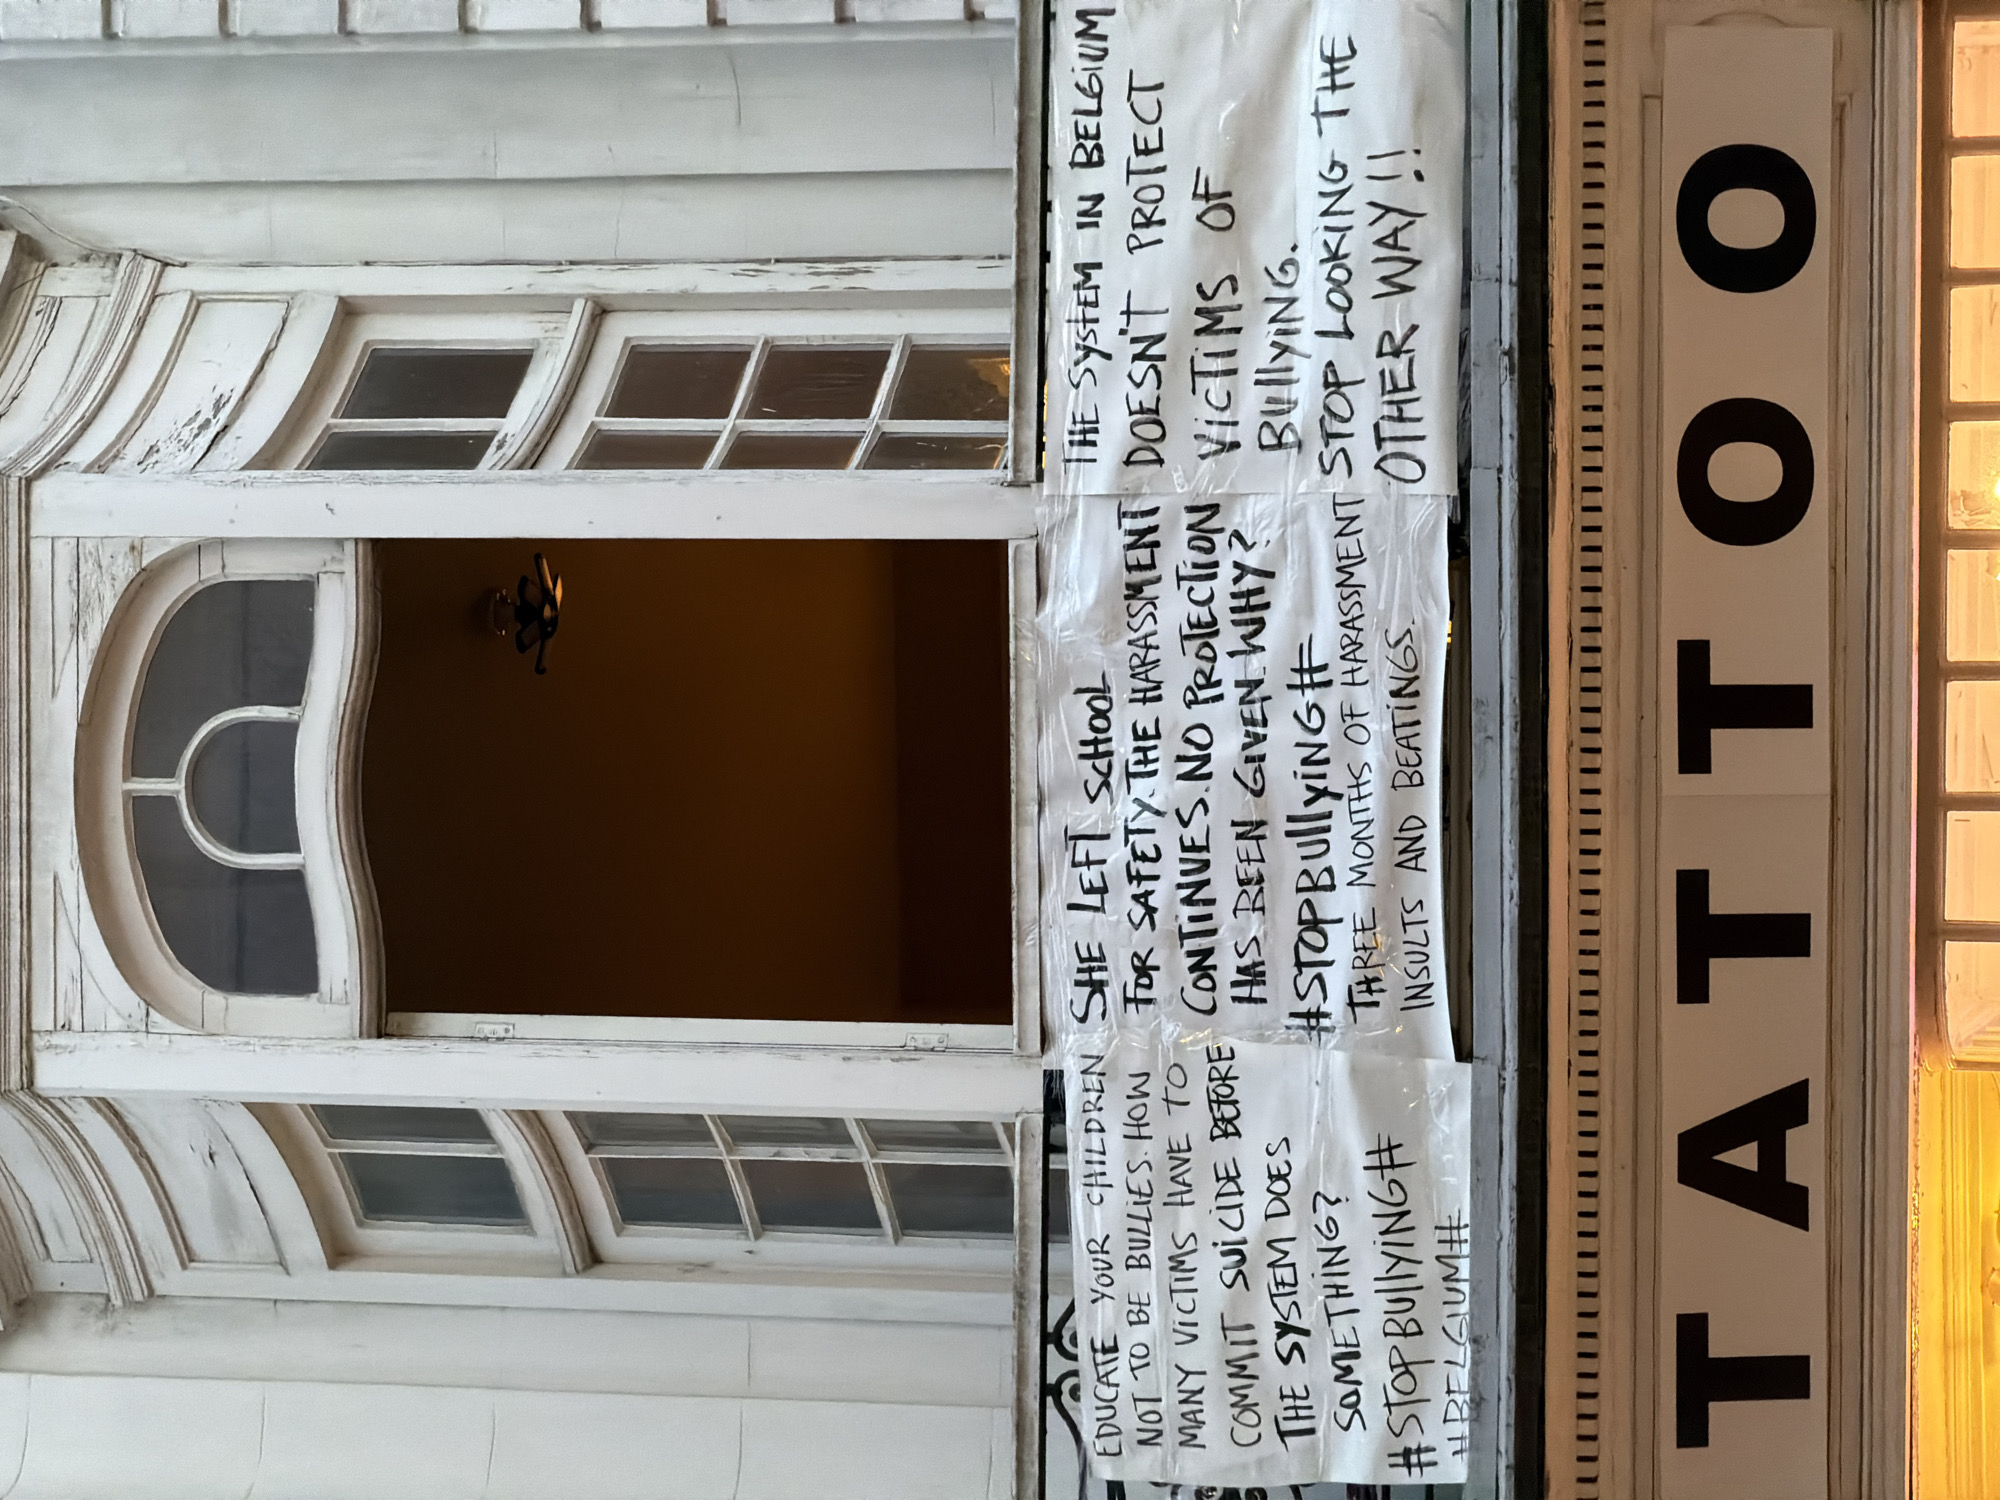 EDUCATE YOUR CHILDREN
NOT TO BE BULLIES. HOW
MANY VICTIMS HAVE TO
COMMIT SUICIDE BEFORE
THE SYSTEM DOES
SOMETHING?
#STOPBULLYING#
#BELGIUM#
SHE LEFT SCHOOL
FOR SAFETY. THE HARASSMENT
CONTINUES. NO PROTECTION
HAS BEEN GIVEN. WHY?
#STOPBULLYING#
THREE MONTHS OF HARASSMENT
INSULTS AND BEATINGS.
THE SYSTEM IN BELGIUM
DOESN'T PROTECT
VICTIMS OF
BULLYING.
STOP LOOKING THE
OTHER WAY!!
TATTOO